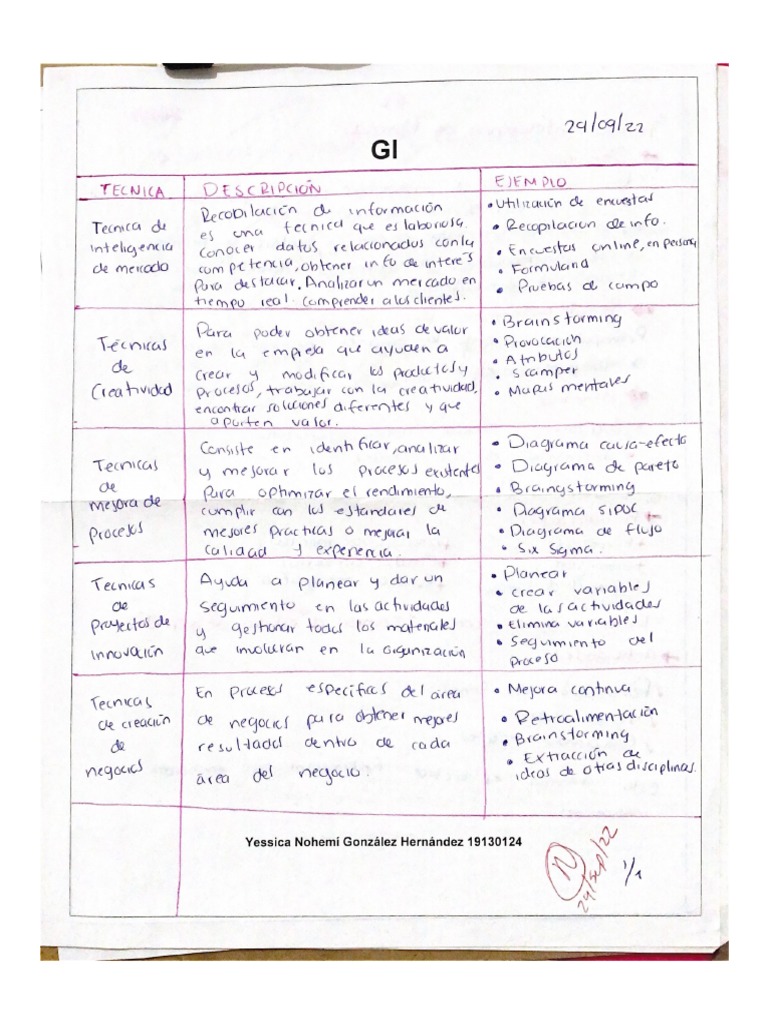 29/09/22
GI
TECNICA
DESCRIPCIÓN
EJEMPLO
Tecnica de
inteligencia
de mercado
Recobilación de información
es una tecnica que es laboriosa.
conocer datos relacionados con la
competencia, obtener info de interes
para destacar. Analizar un mercado en
tiempo real. Comprender a los clientes.
• Utilización de encuestas
• Recopilacion de info.
• Encuestas online, en persona
• Formuland
• Pruebas de campo
Técnicas
de
Creatividad
Para poder obtener ideas de valor
en la empresa que ayuden a
crear y modificar los productos y
procesos, trabajar con la creatividad,
encontrar soluciones diferentes y que
aporten valor.
• Brainstorming
• Provocación
• Atributos
• Scamper
• Mapas mentales
Tecnicas
de
mejora de
procesos
Consiste en identificar, analizar
y mejorar los procesos existentes
para optimizar el rendimiento,
cumplir con los estandares de
mejores practicas o mejorar la
calidad y experiencia.
• Diagrama causa-efecto
• Diagrama de pareto
• Braingstorming
• Diagrama SIPOC
• Diagrama de flujo
• Six Sigma.
Tecnicas
de
proyectos de
innovación
Ayuda a planear y dar un
seguimiento en las actividades
y gestionar todos los materiales
que involucran en la organización
• Planear
• crear variables
de las actividades
• Elimina variables
• Seguimiento del
proceso
Tecnicas
de creación
de
negocios
En procesos especificos del área
de negocios para obtener mejores
resultados dentro de cada
área del negocio.
• Mejora continua
• Retroalimentación
• Brainstorming
• Extracción de
ideas de otras disciplinas.
Yessica Nohemí González Hernández 19130124
N
29/sep/22
1/1